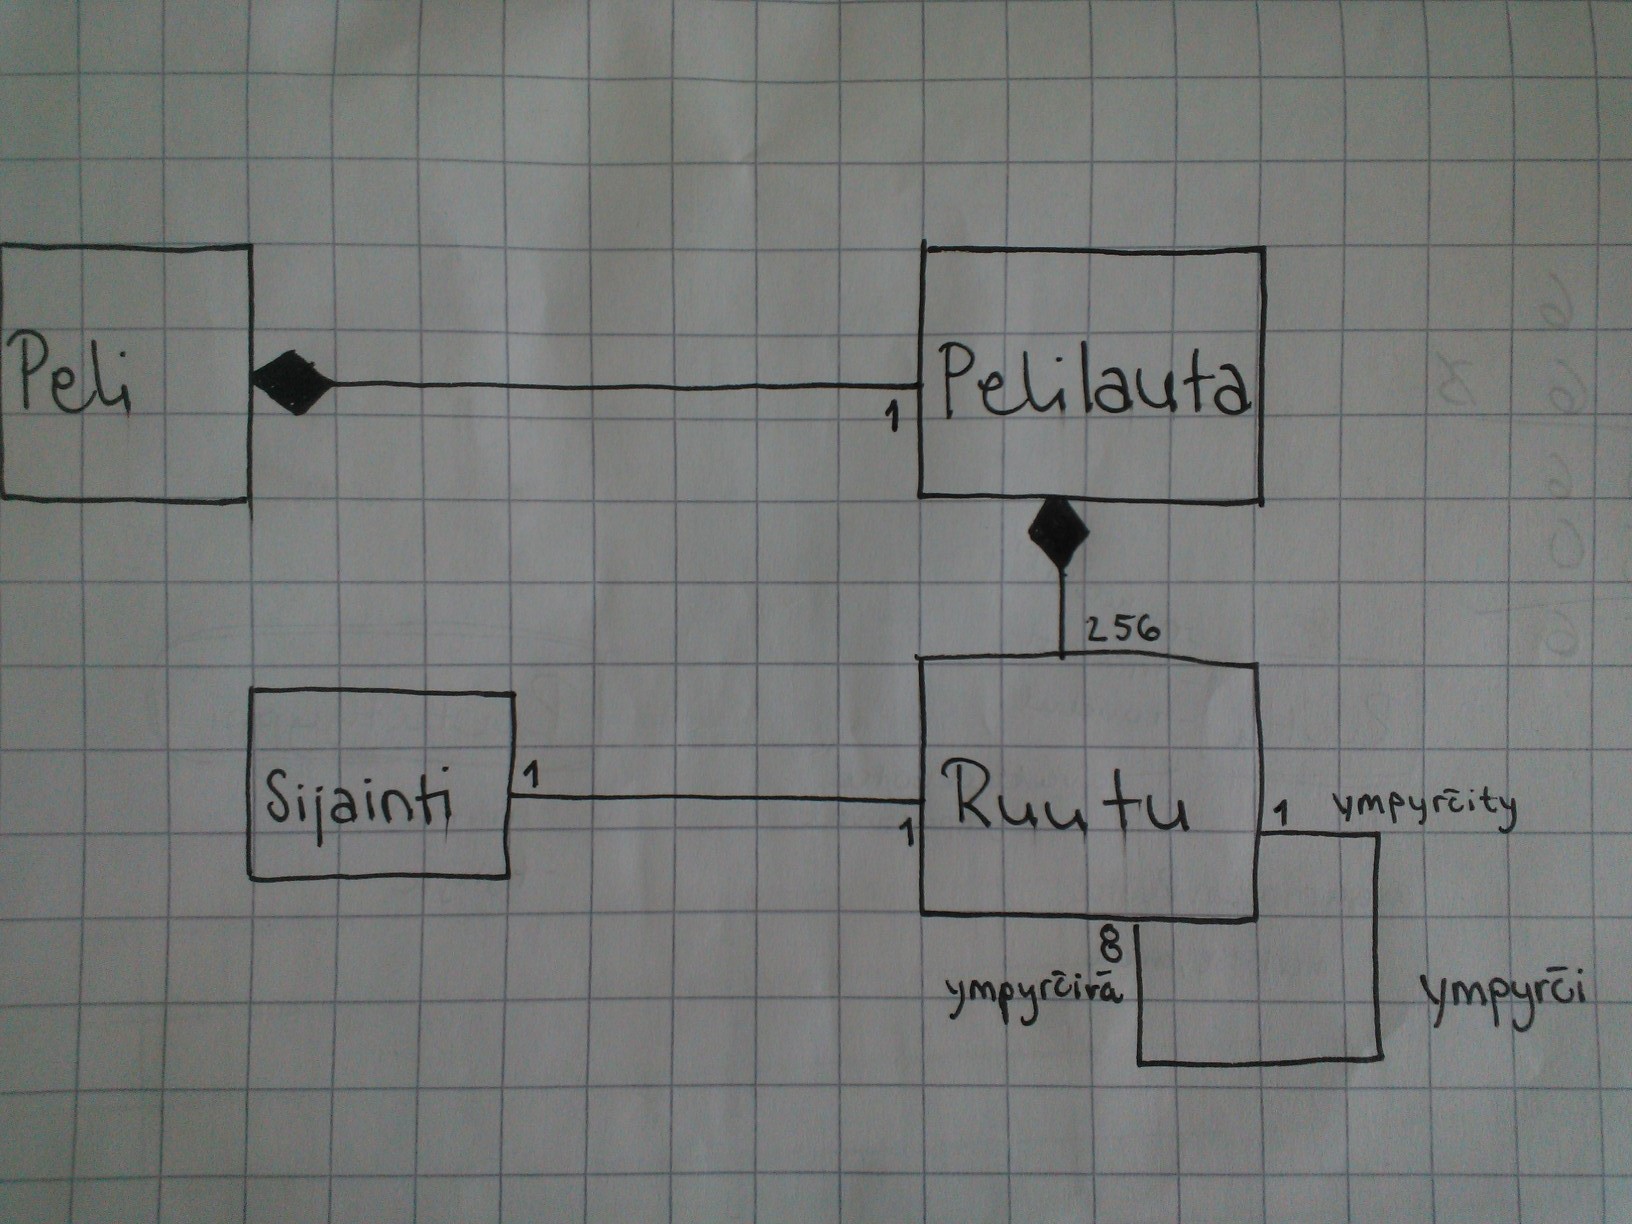 Peli
Pelilauta
1
256
Sijainti
1
1
Ruutu
1
ympyröity
8
ympyröivä
ympyröi